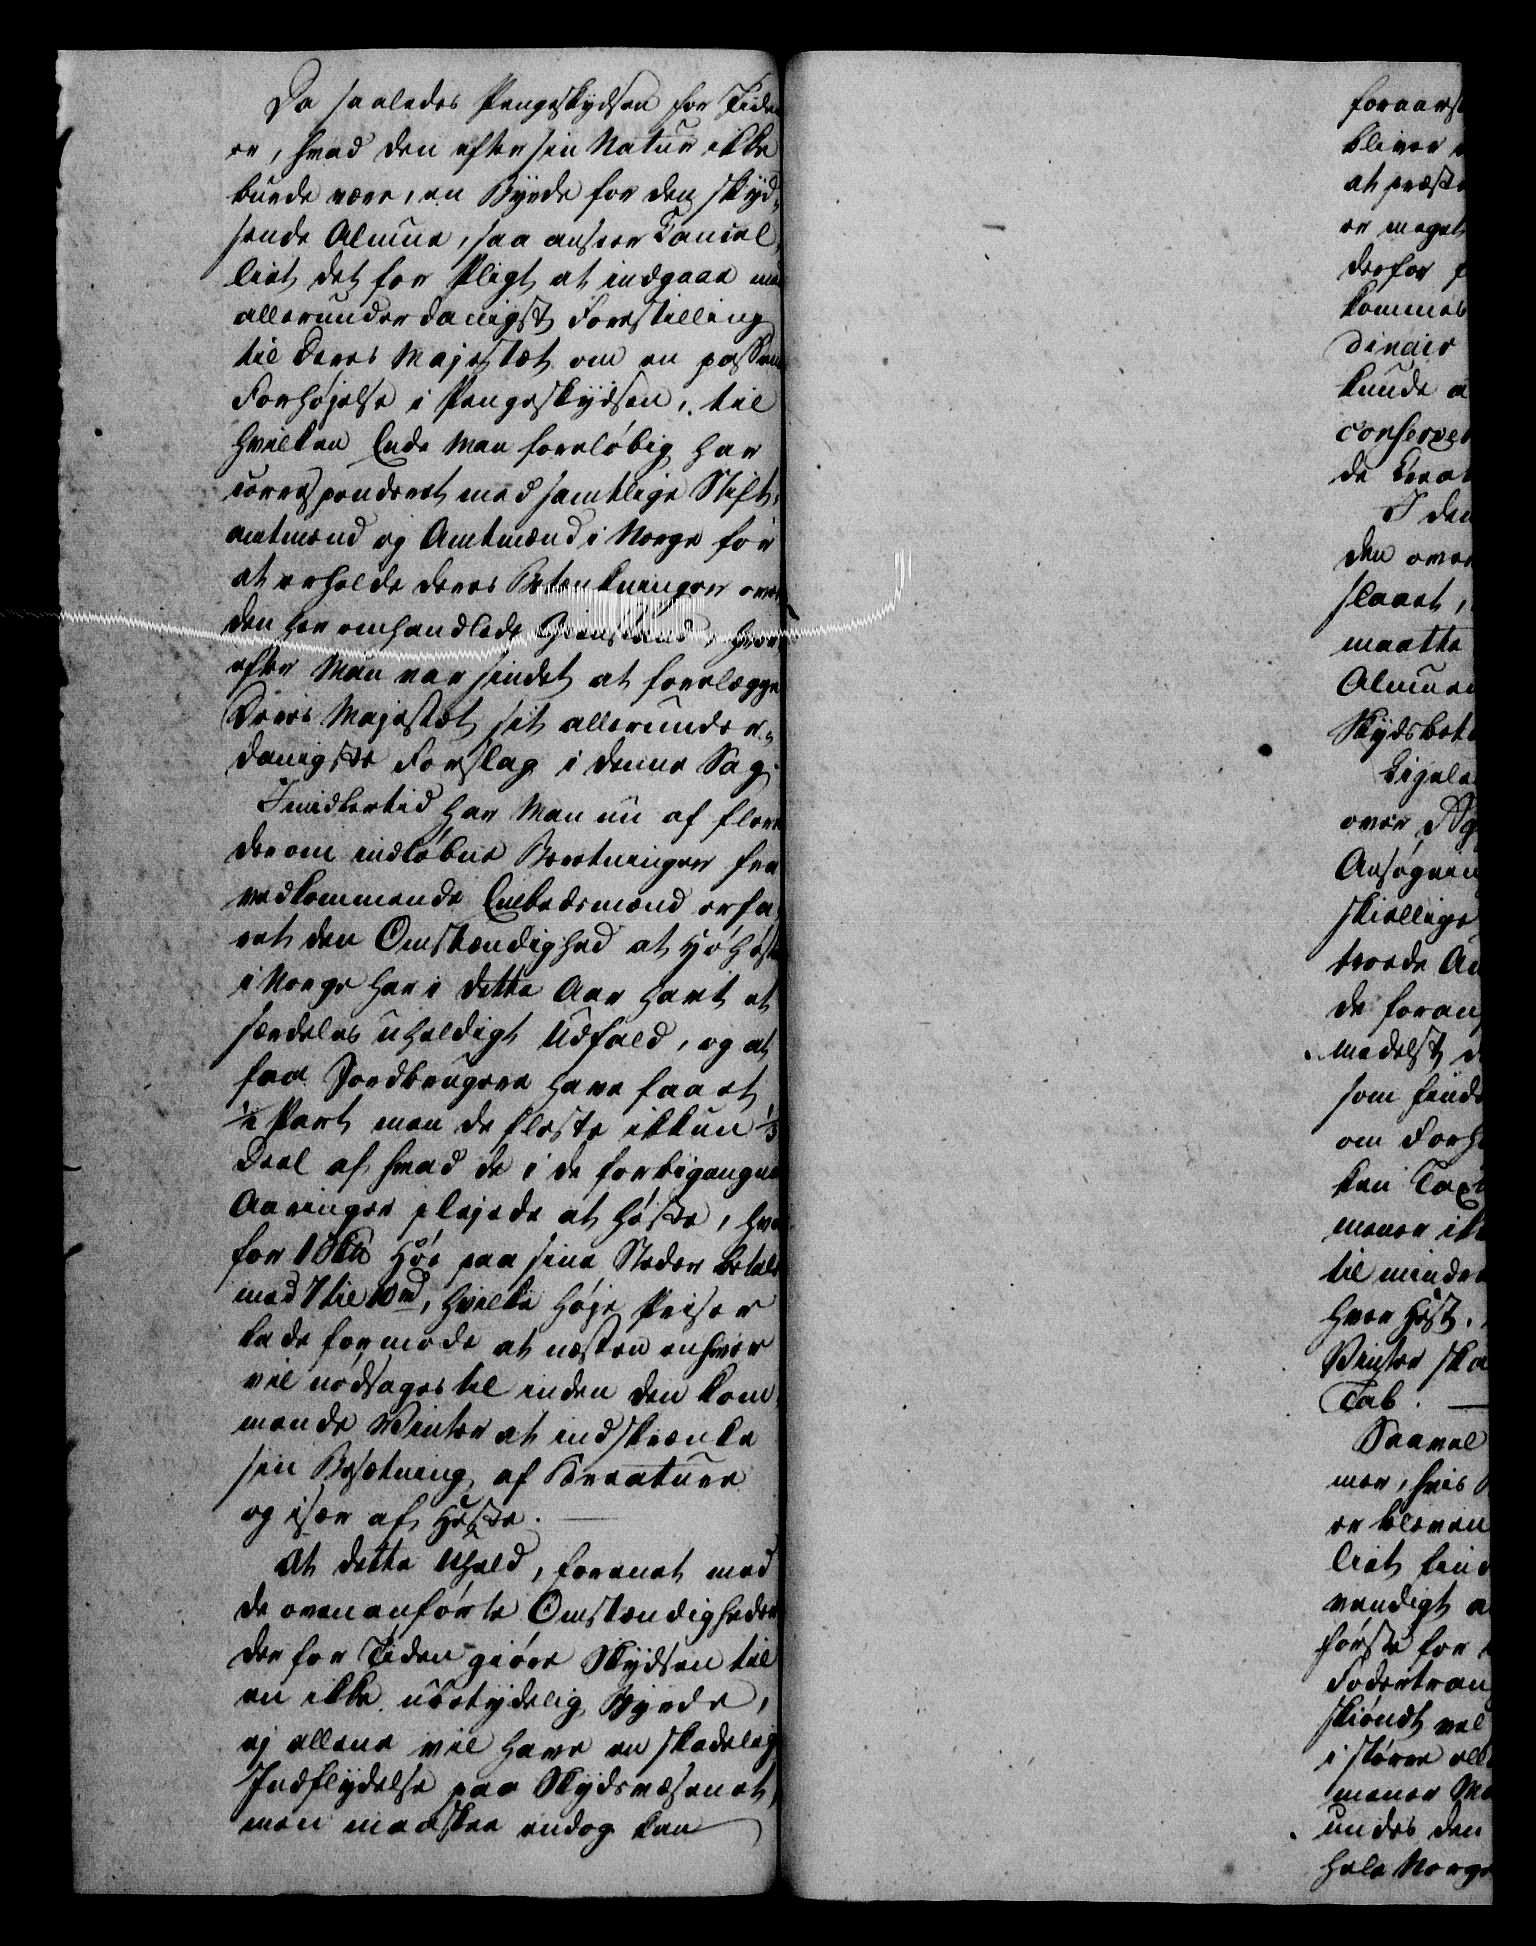 Da saaledes Pengeskydsen for Tiden
er, hvad den efter sin Natur ikke
burde være, en Byrde for den skyd-
sende Almue, saa anseer Cancel-
liet det for Pligt at indgaae med
allerunderdanigst Forestilling
til Deres Majestæt om en passende
Forhøjelse i Pengeskydsen, til
hvilken Ende Man foreløbig har
correspenderet med samtlige Stift-
amtmænd og Amtmænd i Norge for
at erholde deres Betænkninger over
den her omhandlede Gienstand, hvor-
efter Man var sindet at forelægge
Deres Majestæt sit allerunder-
danigste Forslag i denne Sag.
Imidlertid har Man nu af flere
derom indløbne Beretninger fra
vedkommende Embedsmænd erfa-
ret den Omstændighed at Høhøsten
i Norge har i dette Aar havt et
særdeles uheldigt Udfald, og at
faa Jordbrugere have faaet
1/2 Part men de fleste ikkun 1/3
Deel af hvad de i de forbigangne
Aaringer plejede at høste, hvor-
for 1 Høe paa sine Steder betales
med 7 til 10, hvilke høje Priser
lade formode at næsten enhver
vil nødsages til inden den kom-
mende Vinter at indskrænke
sin Besætning af Kreature
og især af Heste.
At dette Uheld, forenet med
de ovenanførte Omstændigheder
der for Tiden giøre Skydsen til
en ikke ubetydelig Byrde,
ej allene vil have en skadelig
Indflydelse paa Skydsvæsenet,
men maaskee endog kan
foraars
bliver
at præste
er meget
derfor
kommes
dinair
kunde
conserver
de Creat
I den
den over
slaaet,
maatte
Almuen
Skydsbet
Ligele
over
Ansøgnin
skiellige
troede
de foran
medelst
som finde
om Forh
ken Tax
mener ik
til mindre
hver Hest.
Vinter ska
Tab.
Saavel
mer, hvis
er bleven
liet find
vendigt
første for
Fodertran
skiøndt vel
i større ell
mener
undes den
hele Norge